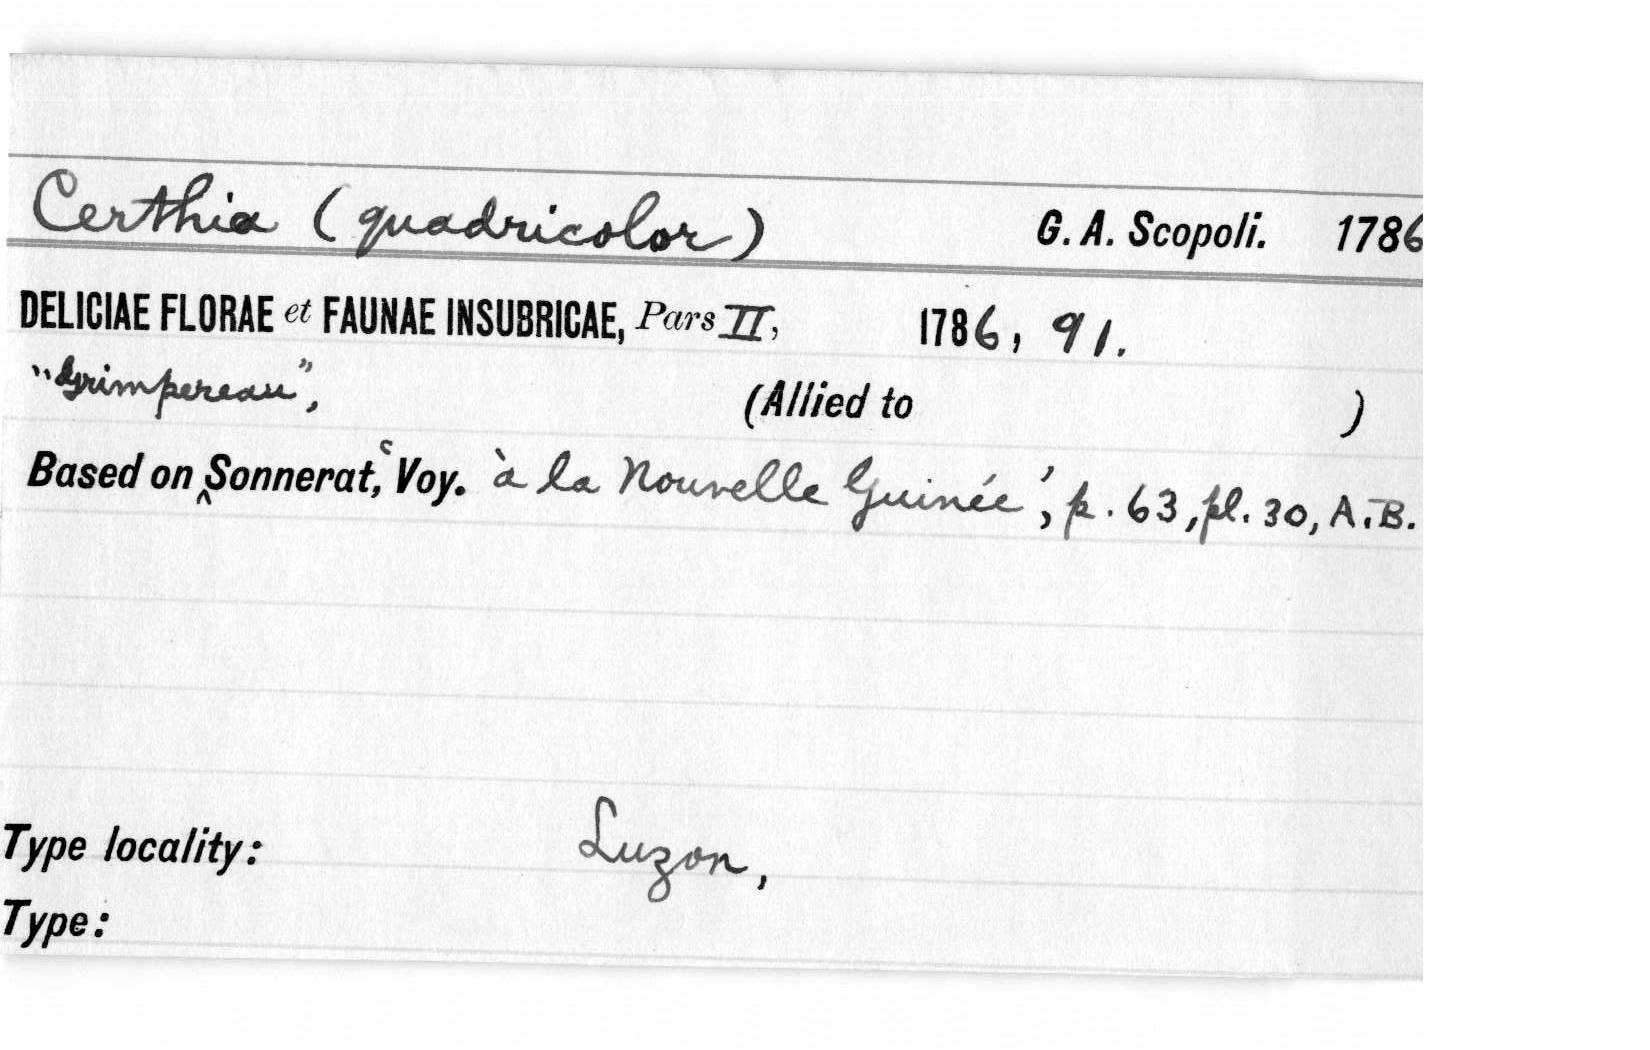 Certhia (quadricolor) G. A. Scopoli. 1786
DELICIAE FLORAE et FAUNAE INSUBRICAE, Pars II, 1786, 91.
"Grimpereau", (Allied to )
Based on ‸Sonnerat, ‘Voy. à la Nouvelle Guinée’, p. 63, pl. 30, A.B.
Type locality: Luzon,
Type: